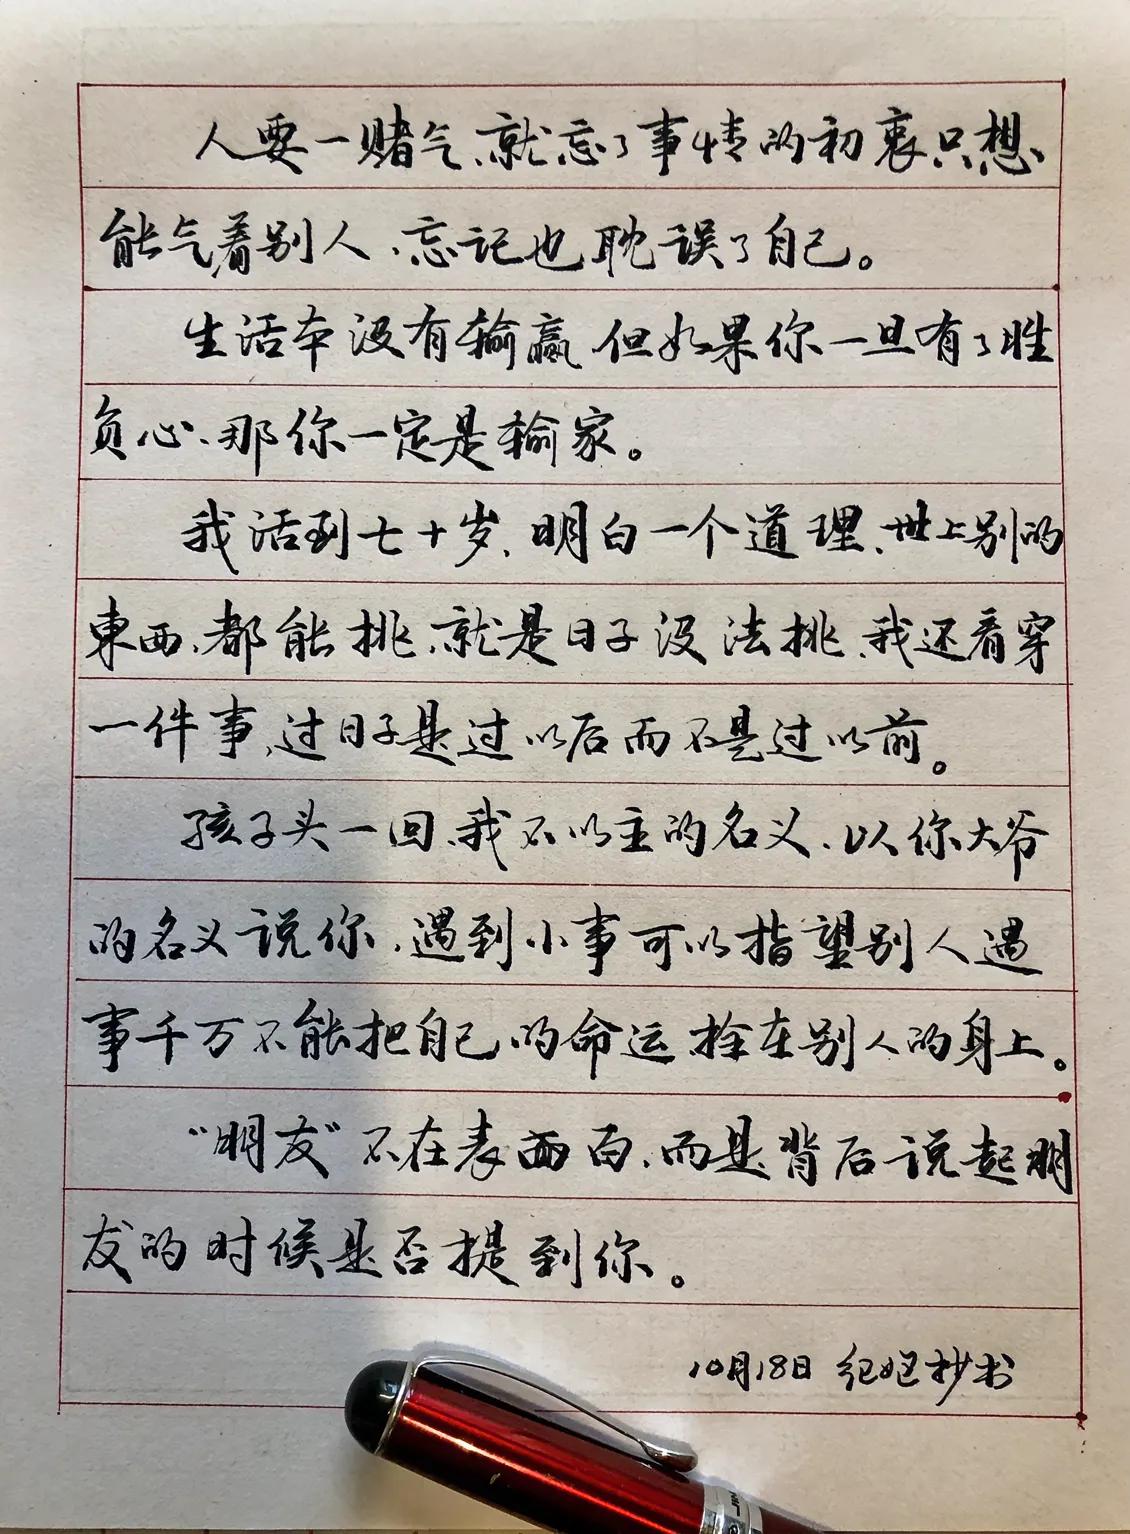 人要一赌气、就忘了事情的初衷只想
能气着别人、忘记也耽误了自己。
生活本没有输赢、但如果你一旦有了胜
负心、那你一定是输家。
我活到七十岁、明白一个道理、世上别的
東西、都能挑、就是日子没法挑、我还看穿
一件事、过日子是过以后而不是过以前。
孩子头一回、我不以主的名义、以你大爷
的名义说你、遇到小事可以指望别人遇
事千万不能把自己的命运拴在别人的身上。
“朋友”不在表面百、而是背后说起朋
友的时候是否提到你。
10月18日 抄书